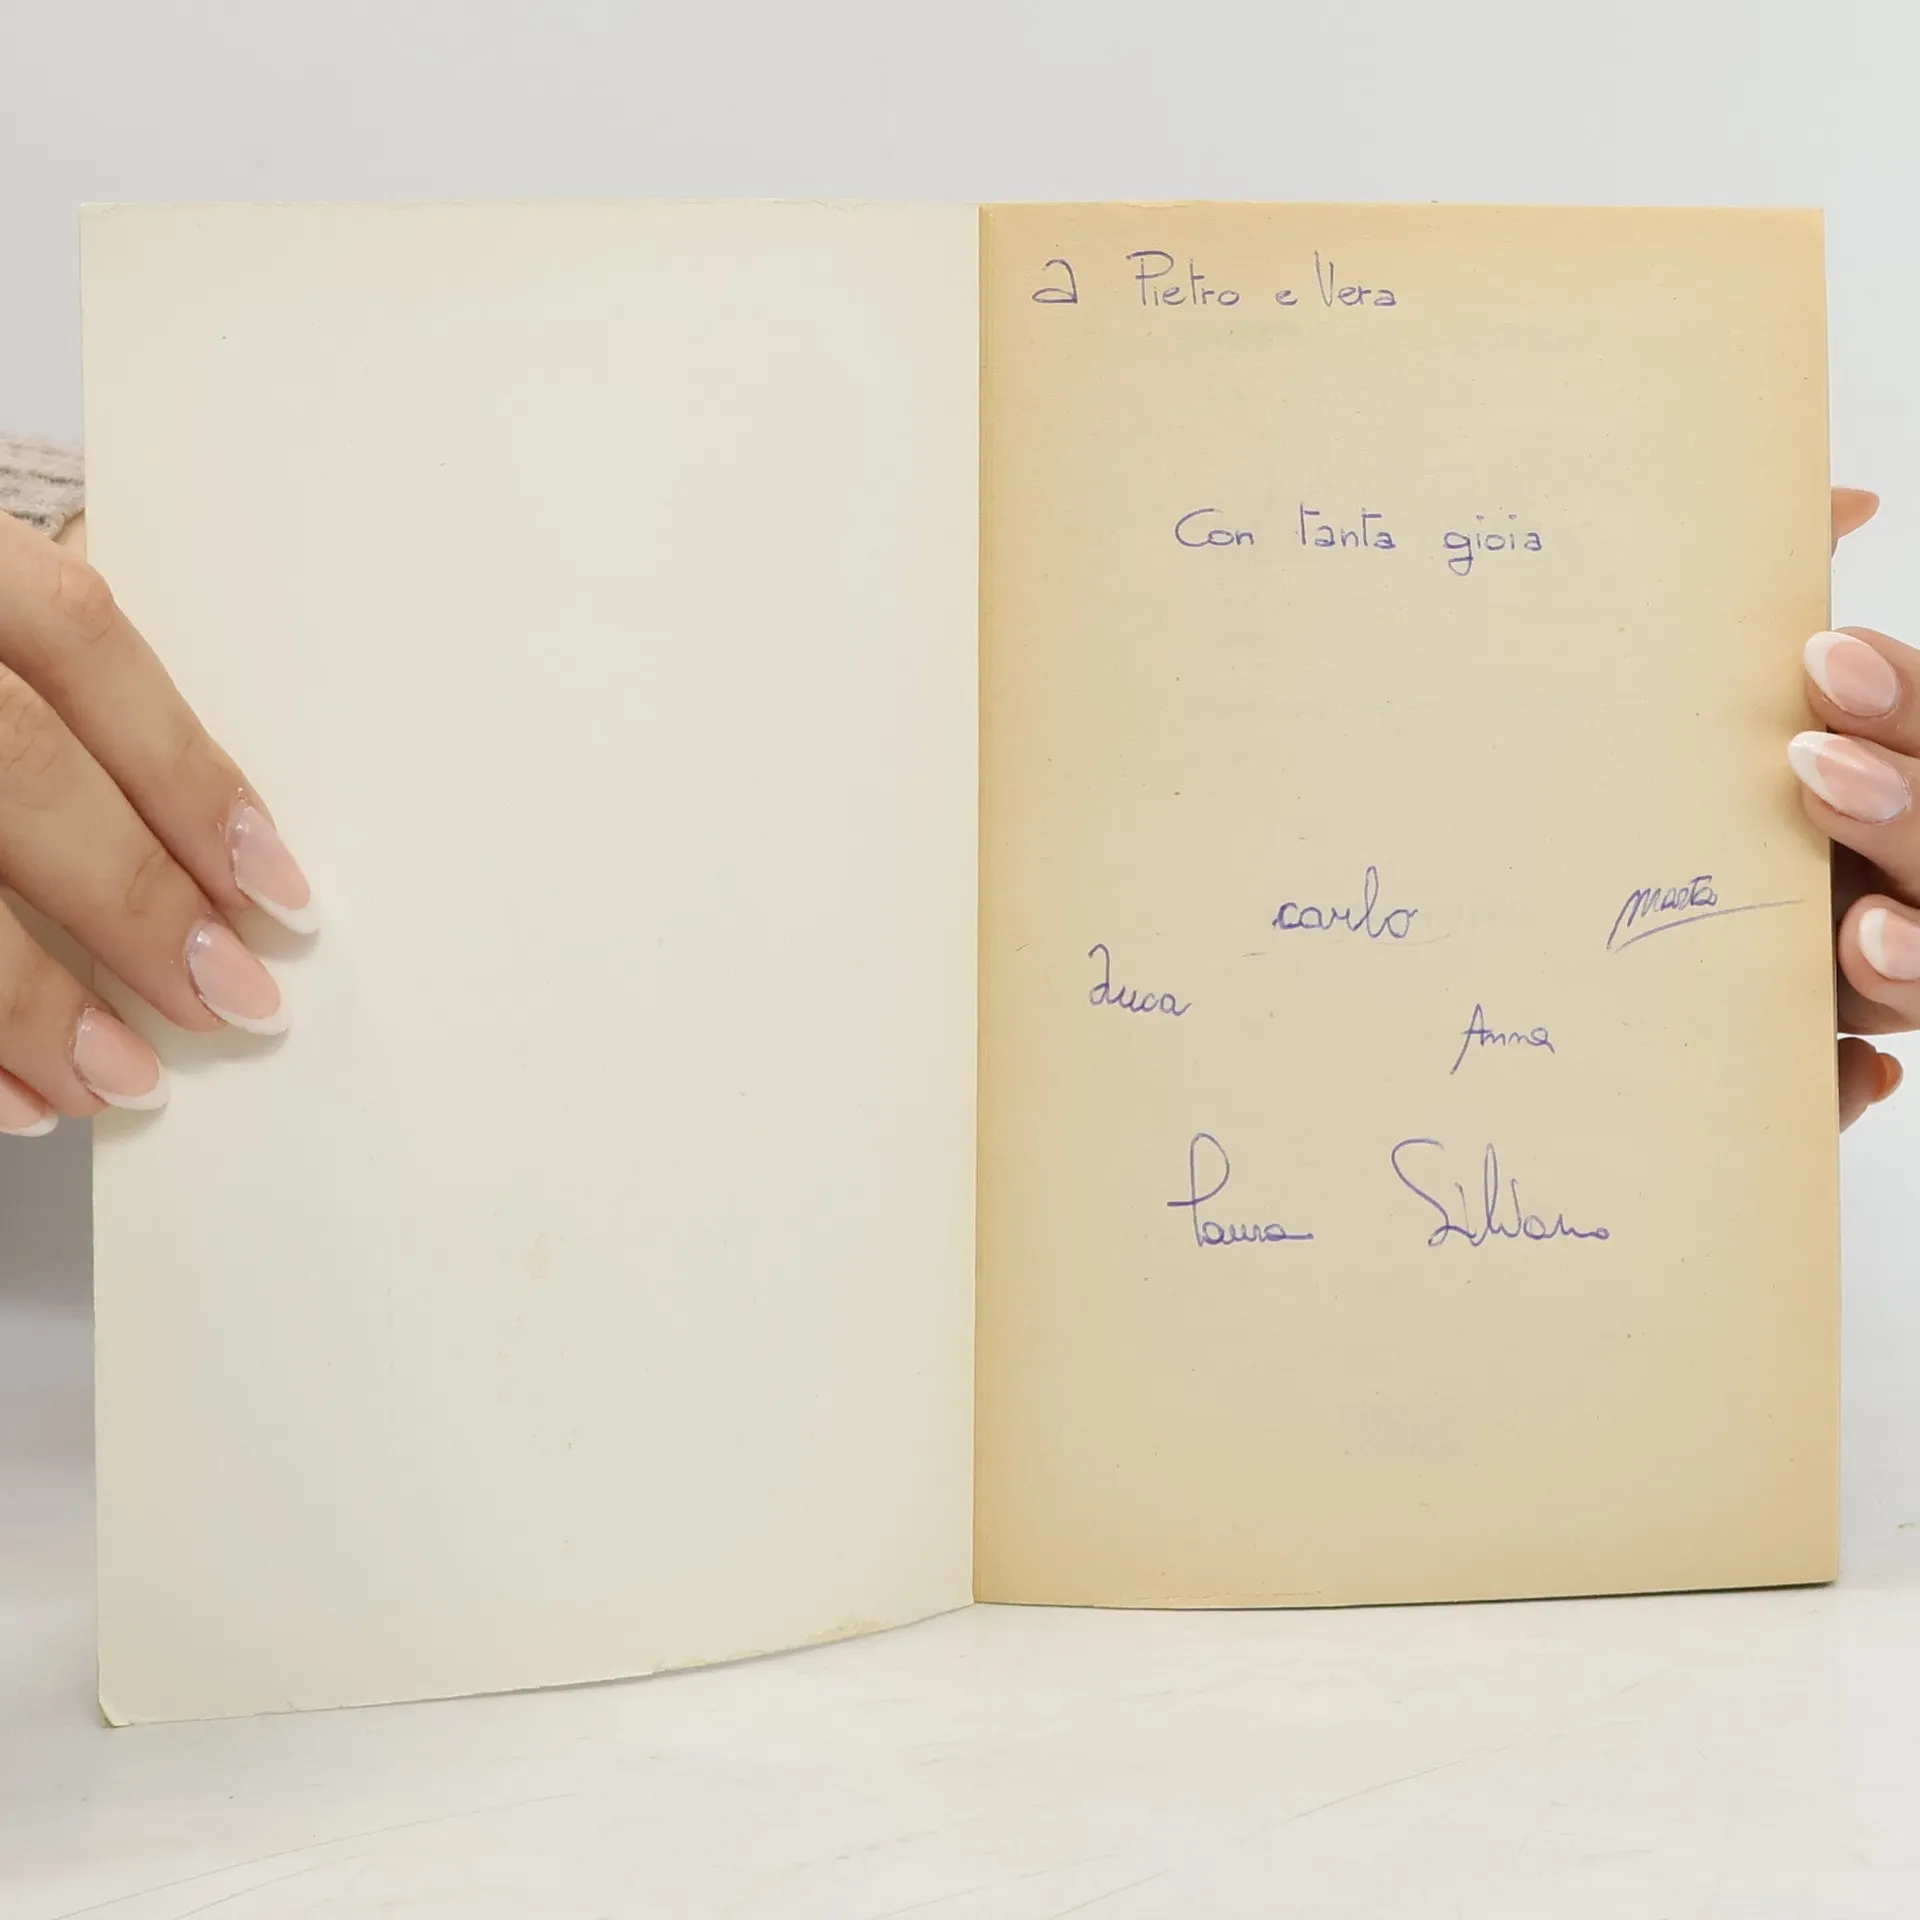 a Pietro e Vera
Con tanta gioia
carlo
marta
Luca
Anna
Laura Silvano